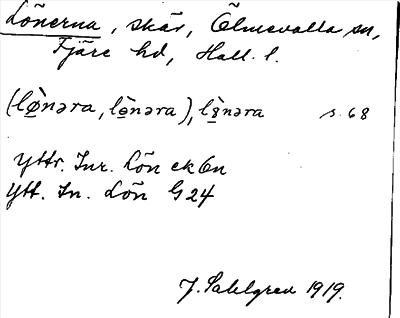 Lönerna, skär, Ölmevalla sn,
Fjäre hd, Hall. l.
(lø̀nəra, lò̤nəra), lö̀nəra s. 68
Yttr. Inr. Lön ek 6n
Ytt. In. Lön G24
J. Sahlgren 1919.